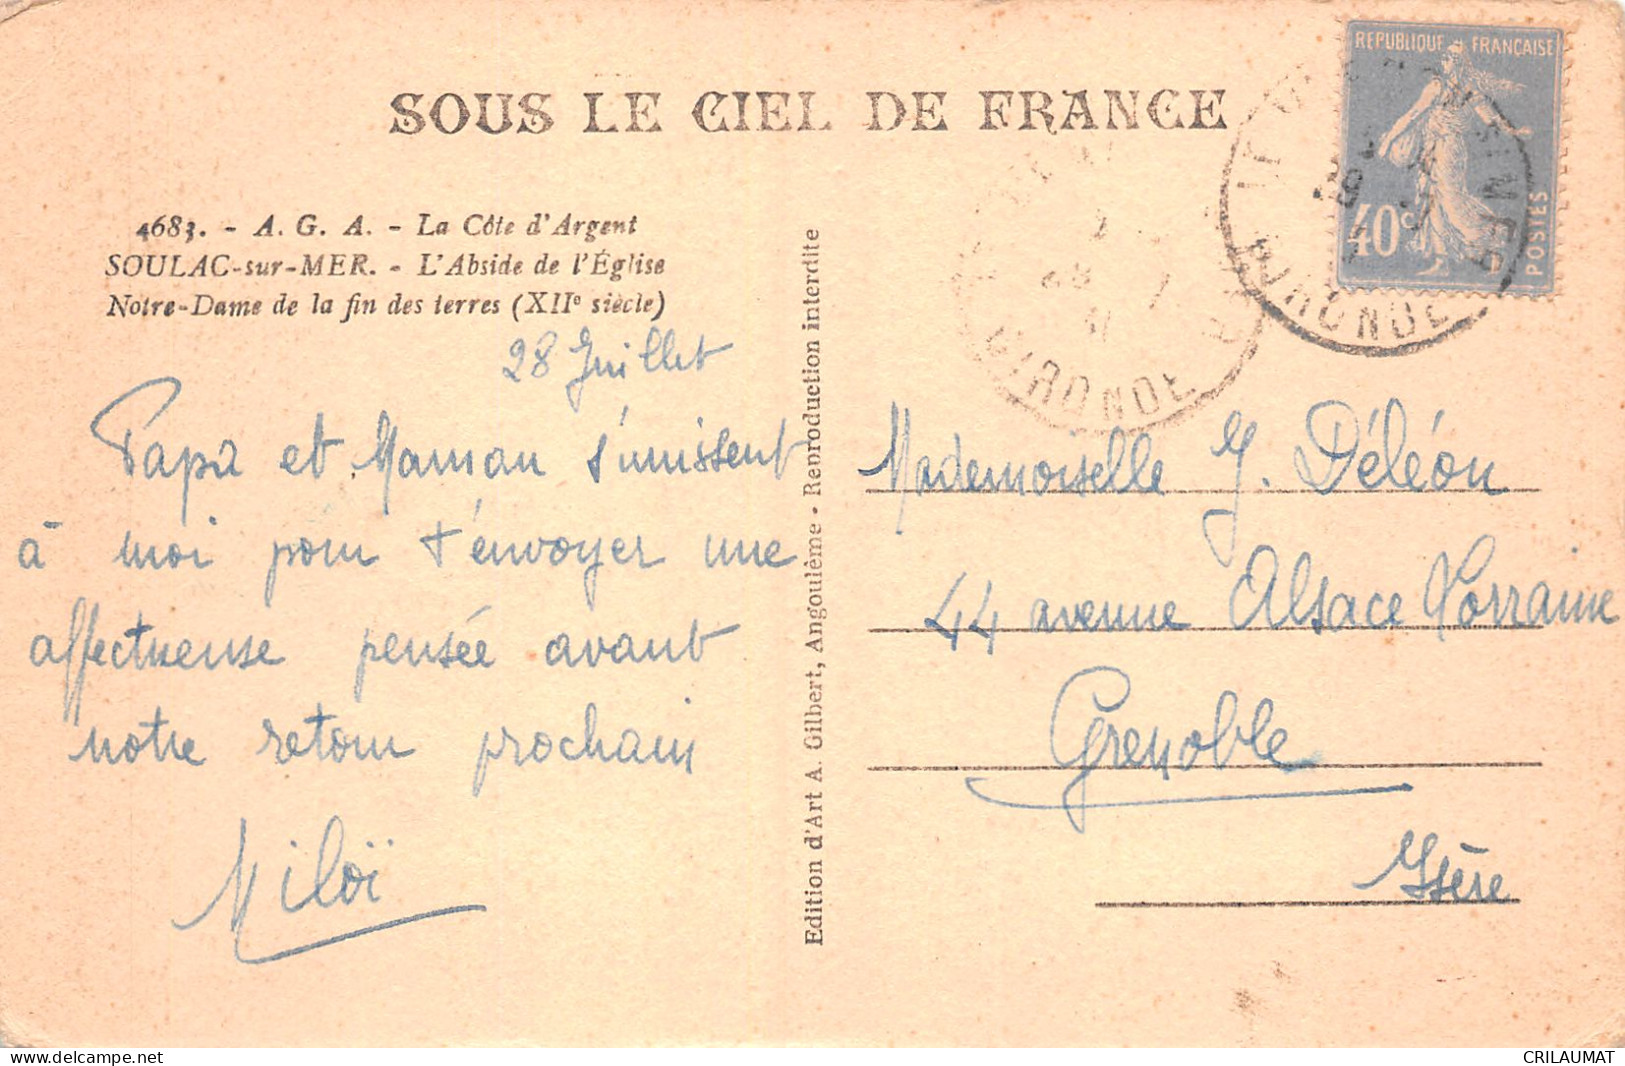 SOUS LE CIEL DE FRANCE
4683. - A. G. A. - La Côte d'Argent
SOULAC-sur-MER. - L'Abside de l'Église
Notre-Dame de la fin des terres (XIIe siècle)
28 Juillet
Papa et Maman s'unissent
à moi pour t'envoyer une
affectueuse pensée avant
notre retour prochain
Miloï
Edition d'Art A. Gilbert, Angoulème - Reproduction interdite
REPUBLIQUE FRANÇAISE
40c
POSTES
GIRONDE
GIRONDE
Mademoiselle Y. Déléon
44 avenue Alsace Lorraine
Grenoble
Isère
CRILAUMAT
delcampe.net/website/item